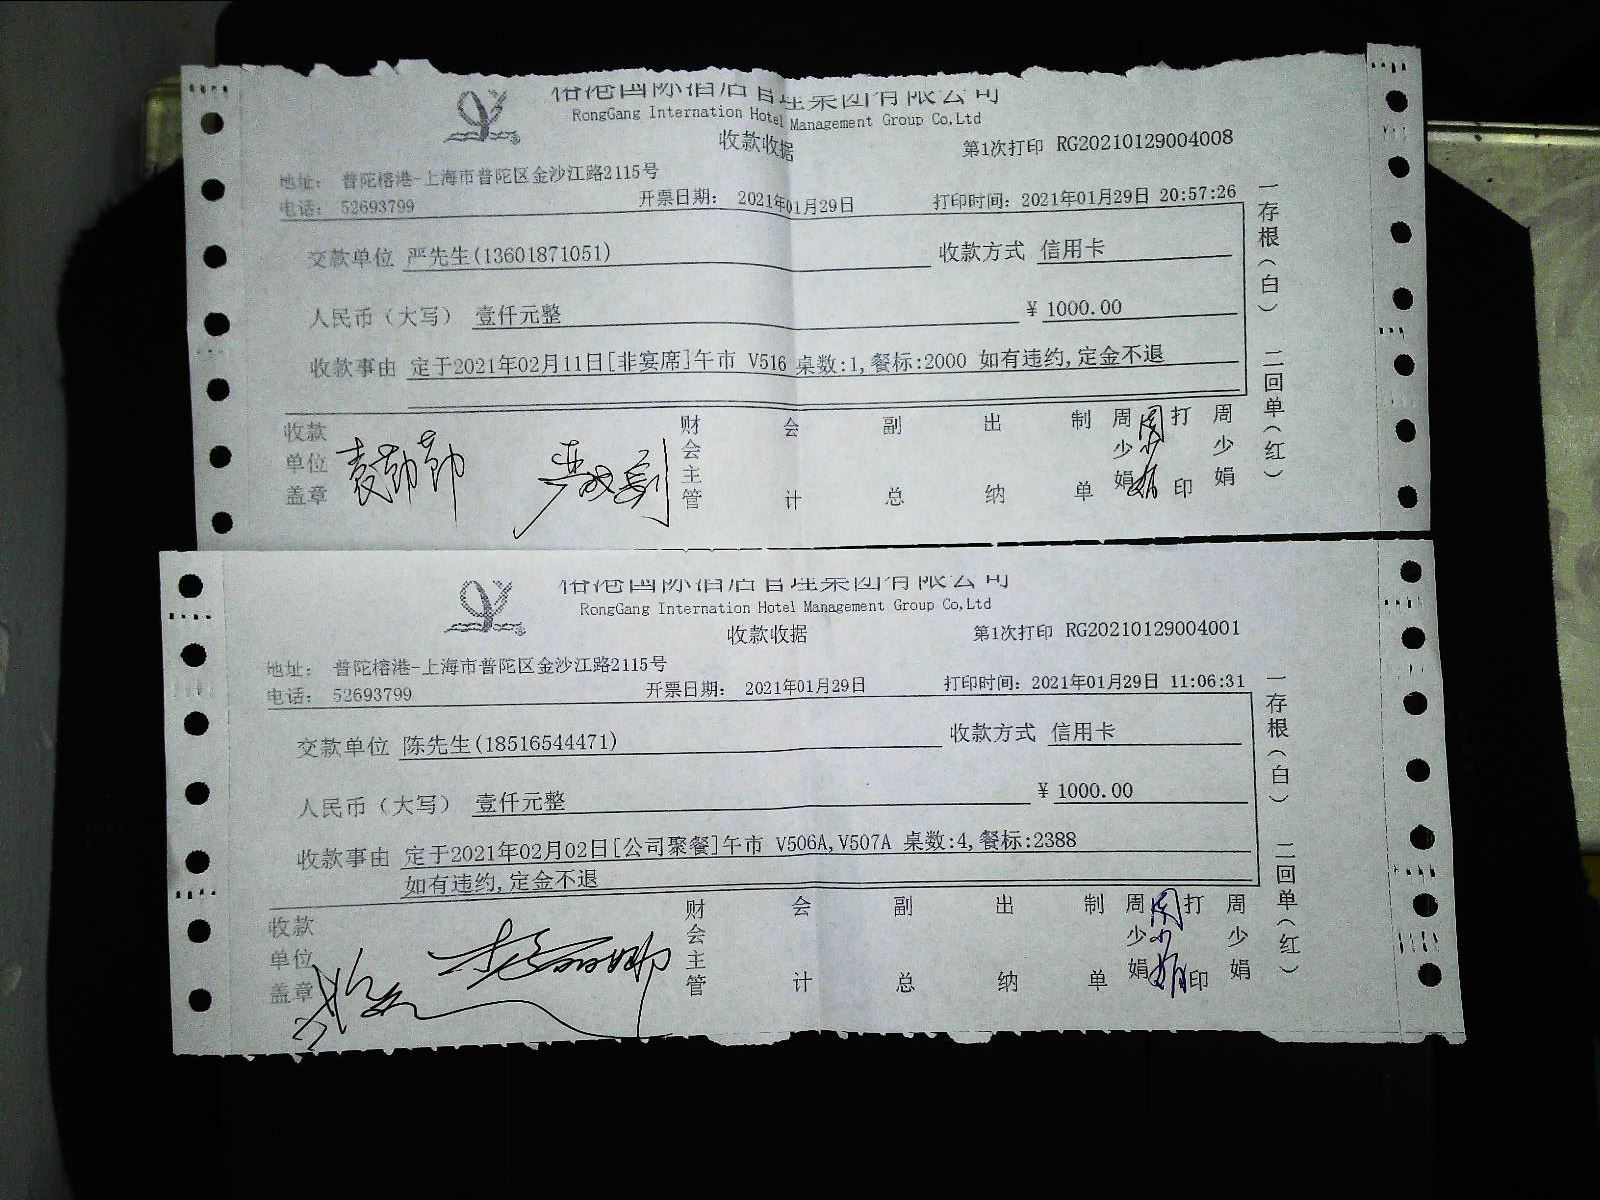 榕港国际酒店管理集团有限公司
RongGang Internation Hotel Management Group Co,Ltd
收款收据
第1次打印 RG20210129004008
地址： 普陀榕港-上海市普陀区金沙江路2115号
电话： 52693799 开票日期： 2021年01月29日 打印时间：2021年01月29日 20:57:26
交款单位 严先生(13601871051) 收款方式 信用卡
人民币（大写） 壹仟元整 ¥ 1000.00
收款事由 定于2021年02月11日[非宴席]午市 V516 桌数:1,餐标:2000 如有违约,定金不退
收款单位盖章 袁勤勤 财会主管 会计 副总 出纳 制单 周少娟 周少娟 打印 周少娟
一存根（白） 二回单（红）
榕港国际酒店管理集团有限公司
RongGang Internation Hotel Management Group Co,Ltd
收款收据
第1次打印 RG20210129004001
地址： 普陀榕港-上海市普陀区金沙江路2115号
电话： 52693799 开票日期： 2021年01月29日 打印时间：2021年01月29日 11:06:31
交款单位 陈先生(18516544471) 收款方式 信用卡
人民币（大写） 壹仟元整 ¥ 1000.00
收款事由 定于2021年02月02日[公司聚餐]午市 V506A,V507A 桌数:4,餐标:2388
如有违约,定金不退
收款单位盖章 财会主管 会计 副总 出纳 制单 周少娟 周少娟 打印 周少娟
一存根（白） 二回单（红）